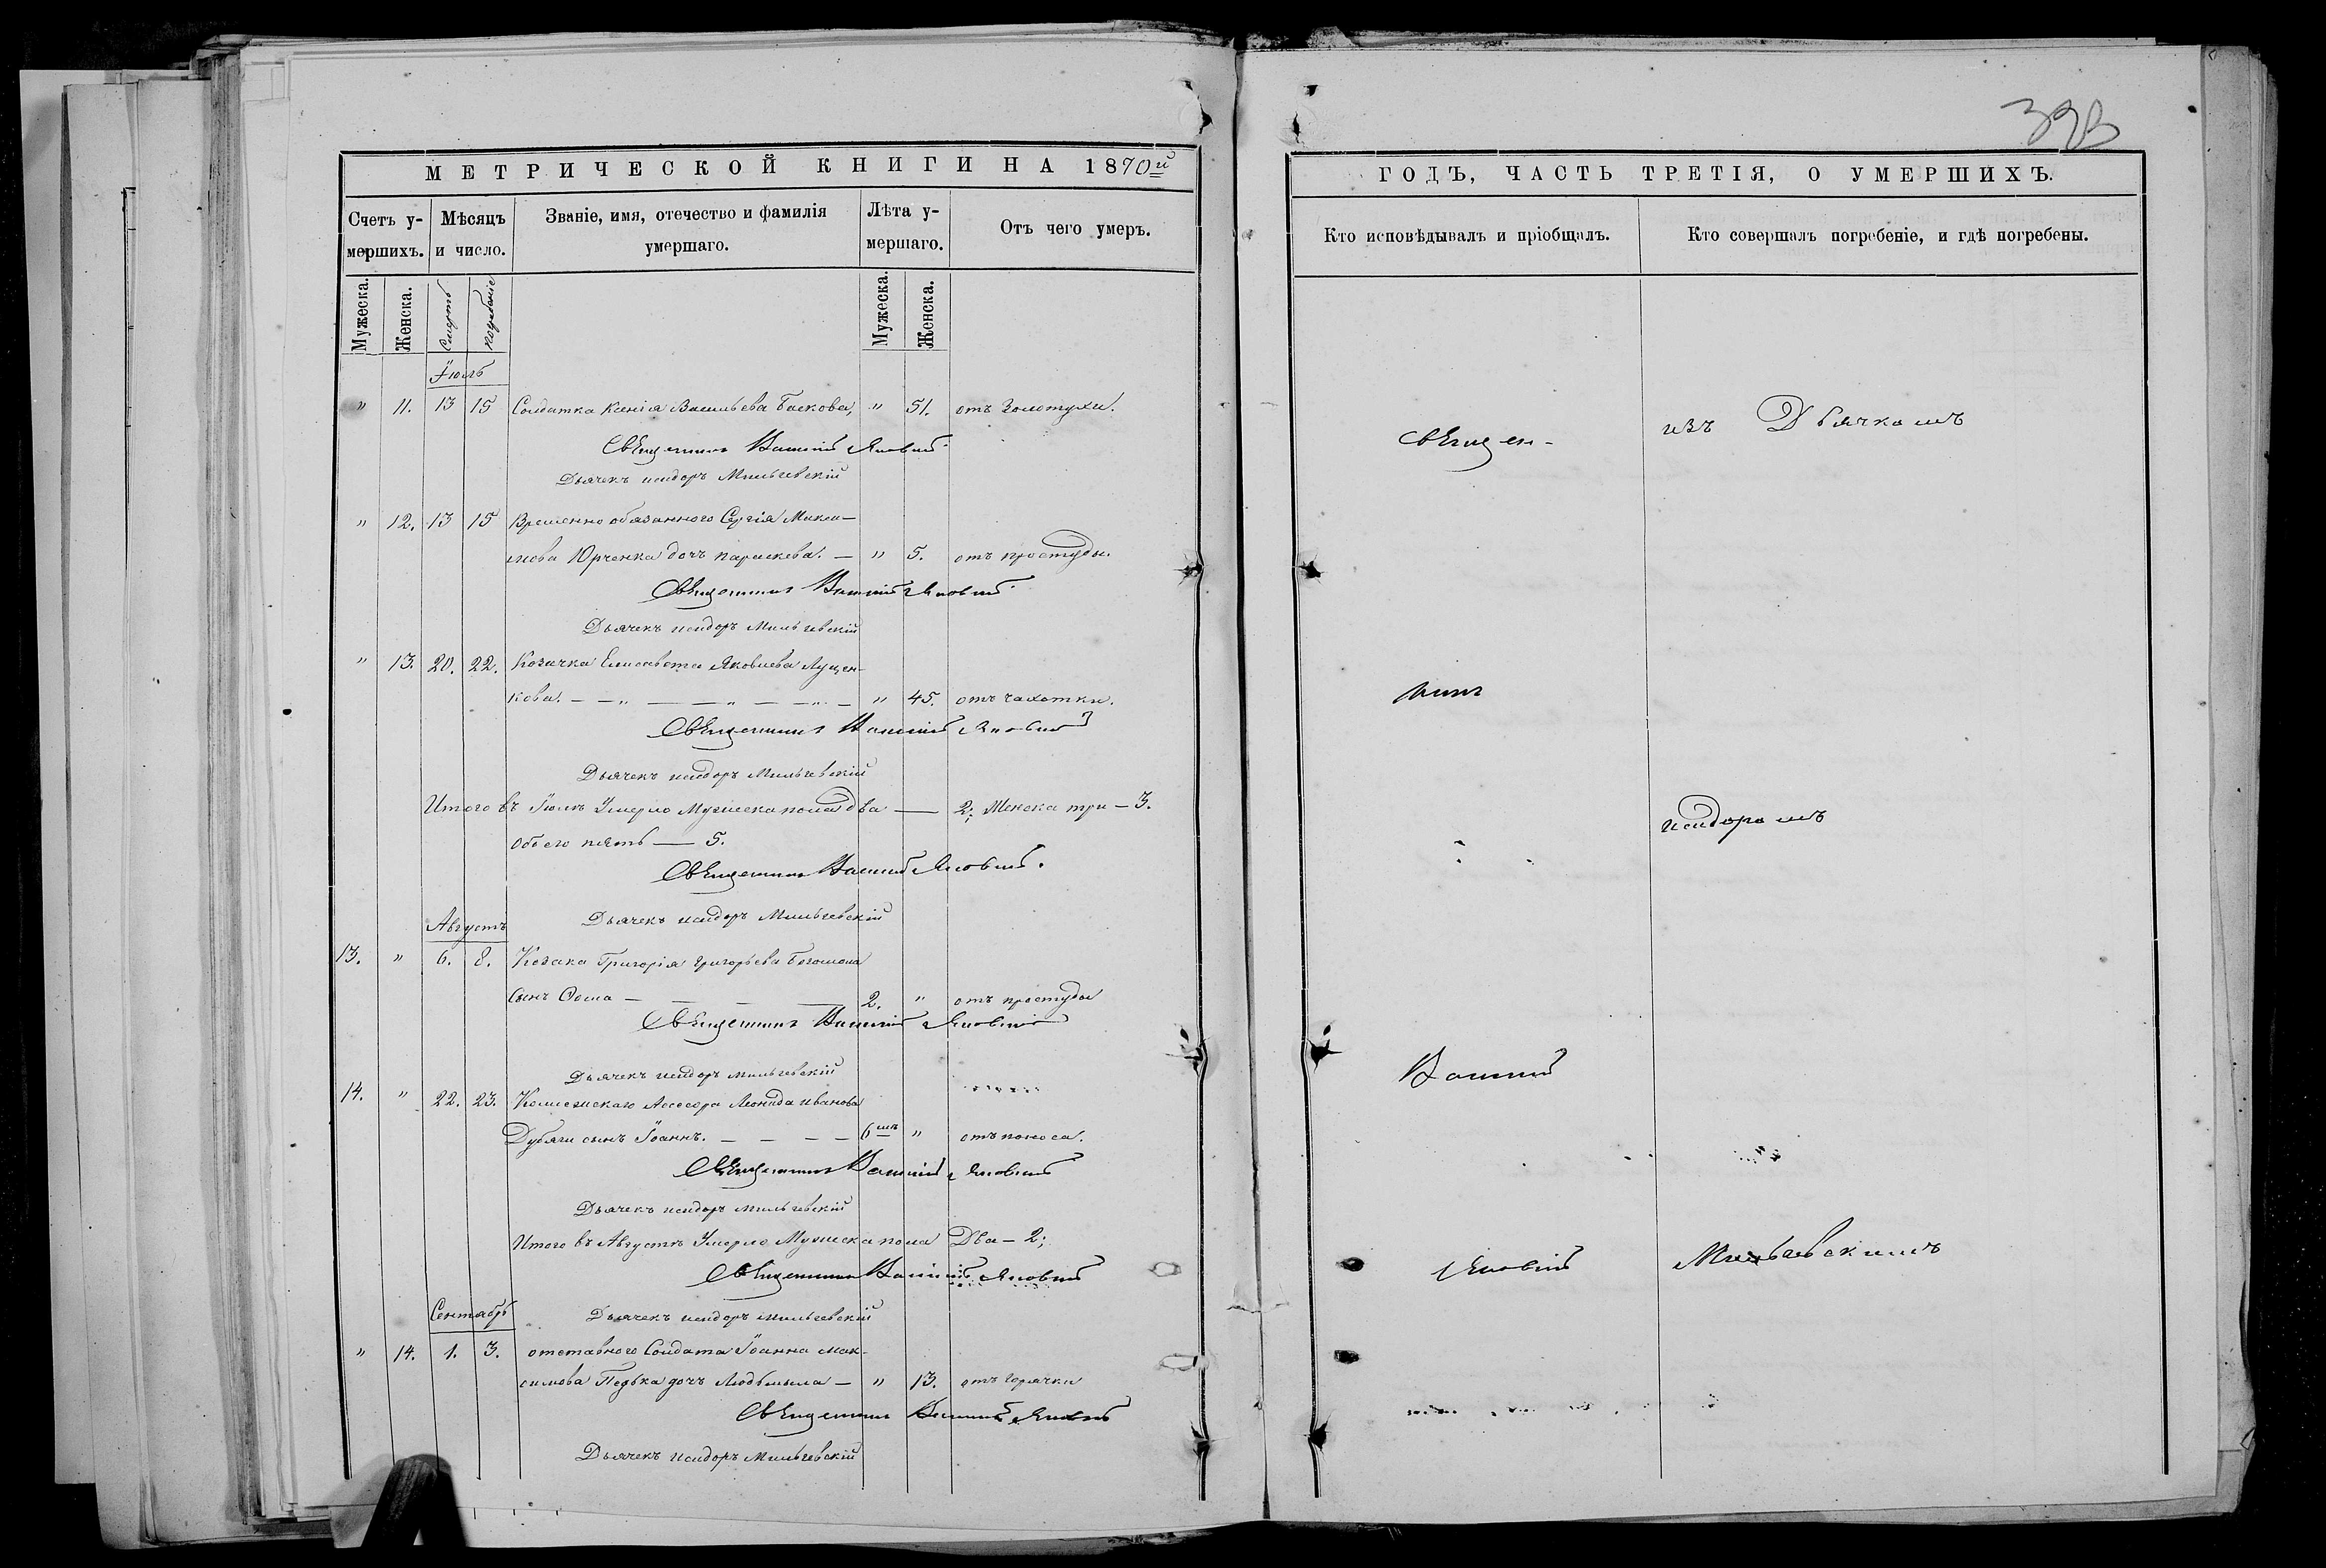 393
МЕТРИЧЕСКОЙ КНИГИ НА 1870й
Счетъ умершихъ. Мѣсяцъ и число. Званіе, имя, отечество и фамилія умершаго. Лѣта умершаго. Отъ чего умеръ.
Мужеска. Женска. Смерть погребеніе Мужеска. Женска.
Іюль
" 11. 13 15 Солдатка Ксенія Васильева Баскова, " 51. отъ Золотухи.
Священникъ Василій Яновскій.
Дьячекъ исидоръ Мильчевскій
" 12. 13 15 Временно обязанного Сергія Макси-
мова Юрченка дочь параскева. — " 5. отъ простуды
Священникъ Василій Яновскій.
Дьячекъ исидоръ Мильчевскій
" 13. 20. 22. Козачка Елисавета Яковлева Луцен-
кова. — " 45. отъ чахотки.
Священникъ Василій Яновскій
Дьячекъ исидоръ Мильчевскій
Итого въ Іюлѣ Умерло Мужеска пола два — 2; Женска три — 3.
обоего пять — 5.
Священникъ Василій Яновскій.
Дьячекъ исидоръ Мильчевскій
Августъ
13. " 6. 8. Козака Григорія григорьева Богомола
Сынъ Ѳома — 2. " отъ простуды
Священникъ Василій Яновскій
Дьячекъ исидоръ мильчевскій
14. " 22. 23. Колежскаго Ассесора Леонида иванова
Дубяги сынъ Іоаннъ. — 6 " отъ поноса.
Священникъ Василій Яновскій
Дьячекъ исидоръ мильчевскій
Итого въ Августѣ Умерло Мужеска пола Два — 2;
Священникъ Василій Яновскій
Дьячекъ исидоръ мильчевскій
Сентябрь
" 14. 1. 3. отставного Солдата Іоанна мак-
симова Педька дочь Людьмыла — " 13. отъ горячки
Священникъ Василій Яновскій
Дьячекъ исидоръ Мильчевскій
ГОДЪ, ЧАСТЬ ТРЕТІЯ, О УМЕРШИХЪ.
Кто исповѣдывалъ и пріобщалъ. Кто совершалъ погребеніе, и гдѣ погребены.
Священ-
никъ
Василій
Яновскій
изъ Дьячкомъ
исидоромъ
Мильчевскимъ